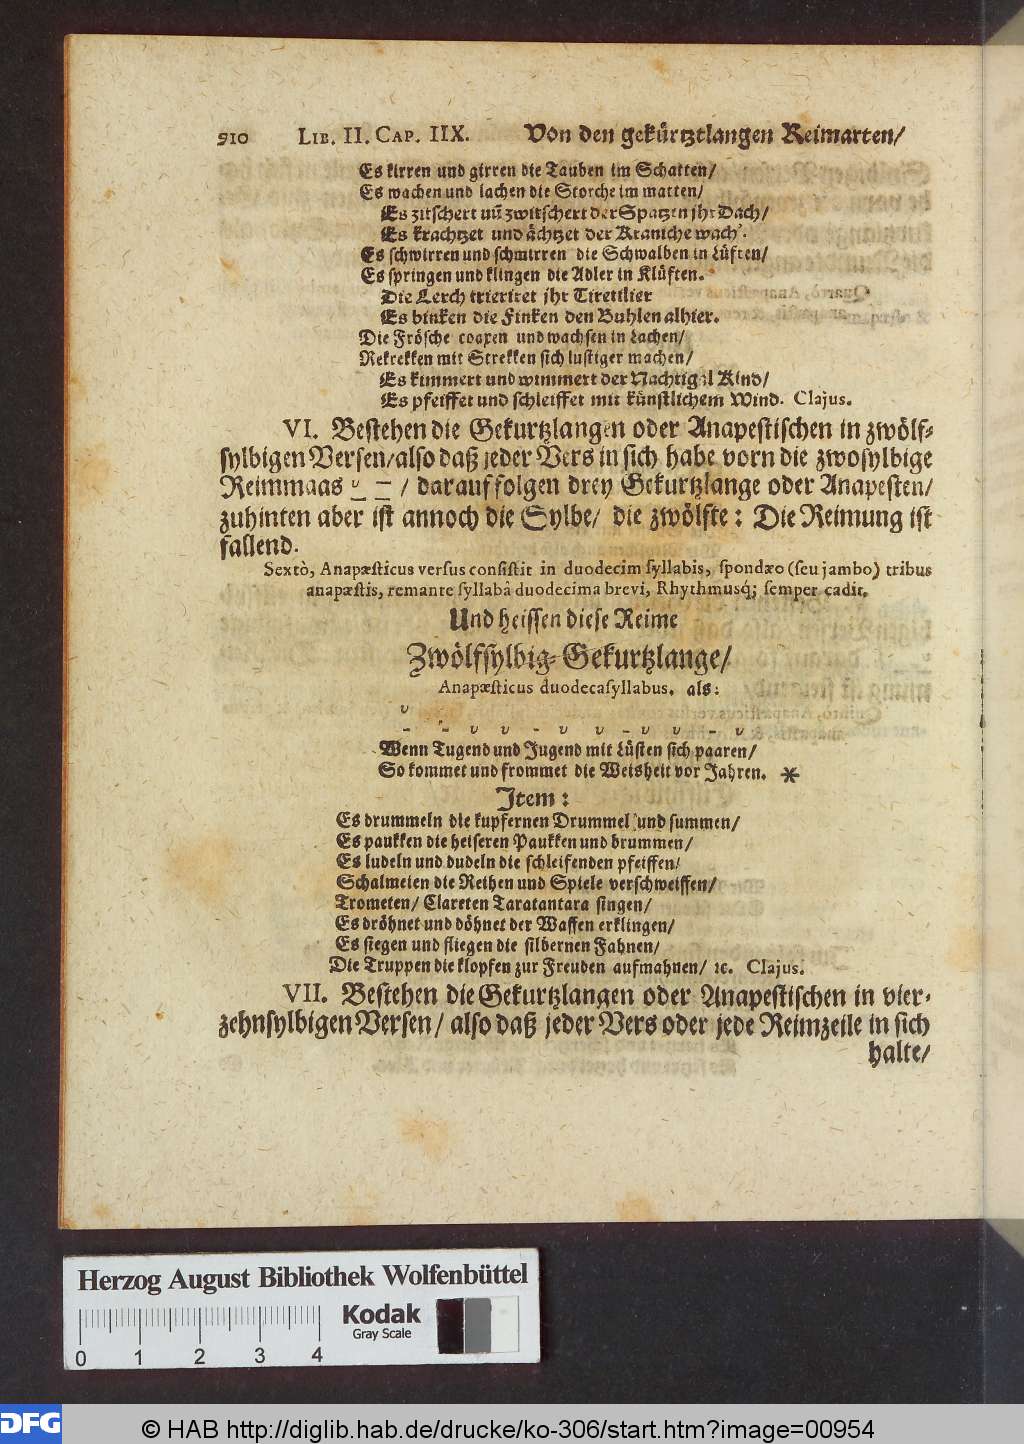 910 LIB. II. CAP. IIX. Von den gekürtztlangen Reimarten/
Es kirren und girren die Tauben im Schatten/
Es wachen und lachen die Storche im matten/
Es zitschert uñ zwitschert der Spatzen jhr Dach/
Es krachtzet und ächtzet der Kraniche wach.
Es schwirren und schmirren die Schwalben in Lüften/
Es springen und klingen die Adler in Klüften.
Die Lerch trieriret jhr Tirettlier
Es binken die Finken den Buhlen alhier.
Die Frösche coaxen und wachsen in Lachen/
Rekrekken mit Strekken sich lustiger machen/
Es kimmert und wimmert der Nachtigal Kind/
Es pfeiffet und schleiffet mit künstlichem Wind. Clajus.
VI. Bestehen die Gekurtzlangen oder Anapestischen in zwölf-
sylbigen Versen/also daß jeder Vers in sich habe vorn die zwosylbige
Reimmaas υ — / darauf folgen drey Gekurtzlange oder Anapesten/
zuhinten aber ist annoch die Sylbe/ die zwölfte: Die Reimung ist
fallend.
Sextò, Anapæsticus versus consistit in duodecim syllabis, spondæo (seu jambo) tribus
anapæstis, remante syllabâ duodecima brevi, Rhythmusq́; semper cadit.
Und heissen diese Reime
Zwölfsylbig-Gekurtzlange/
Anapæsticus duodecasyllabus. als:
υ
- - υ υ - υ υ - υ υ - υ
Wenn Tugend und Jugend mit Lüsten sich paaren/
So kommet und frommet die Weisheit vor Jahren. *
Item:
Es drummeln die kupfernen Drummel und summen/
Es paukken die heiseren Paukken und brummen/
Es ludeln und dudeln die schleifenden pfeiffen/
Schalmeien die Reihen und Spiele verschweiffen/
Trometen/ Clareten Taratantara singen/
Es dröhnet und döhnet der Waffen erklingen/
Es siegen und fliegen die silbernen Fahnen/
Die Truppen die klopfen zur Freuden aufmahnen/ ꝛc. Clajus.
VII. Bestehen die Gekurtzlangen oder Anapestischen in vier-
zehnsylbigen Versen/ also daß jeder Vers oder jede Reimzeile in sich
halte/
Herzog August Bibliothek Wolfenbüttel
Kodak
Gray Scale
0 1 2 3 4
DFG
© HAB http://diglib.hab.de/drucke/ko-306/start.htm?image=00954